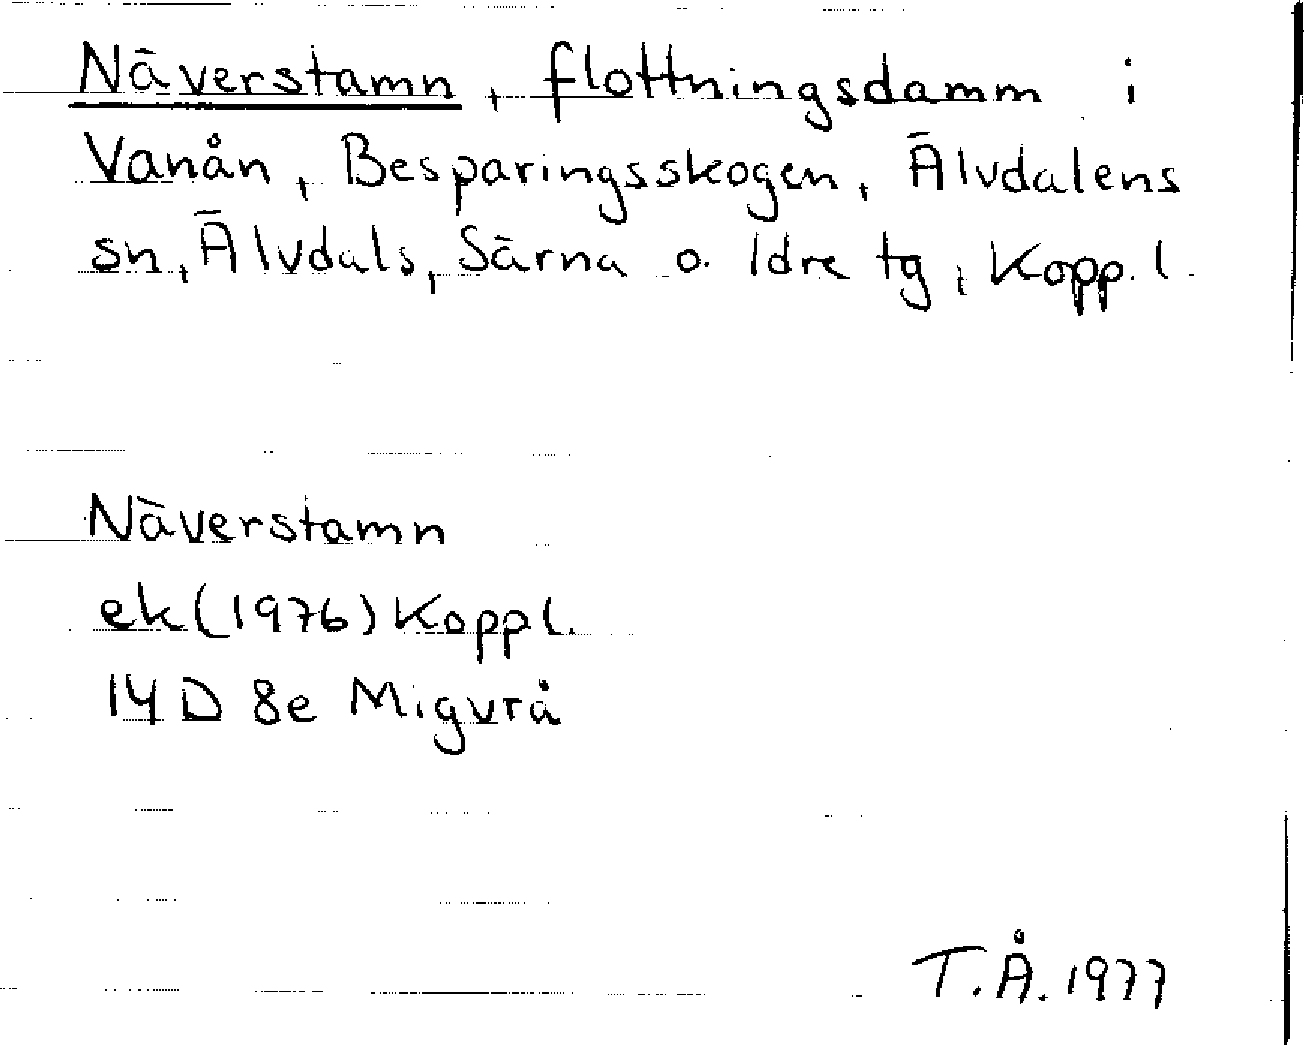 Näverstamn, flottningsdamm i
Vanån, Besparingsskogen, Älvdalens
sn, Älvdals, Särna o. Idre tg, Kopp. l.
Näverstamn
ek (1976) Kopp l.
14 D 8e Migurå
T.Å. 1977